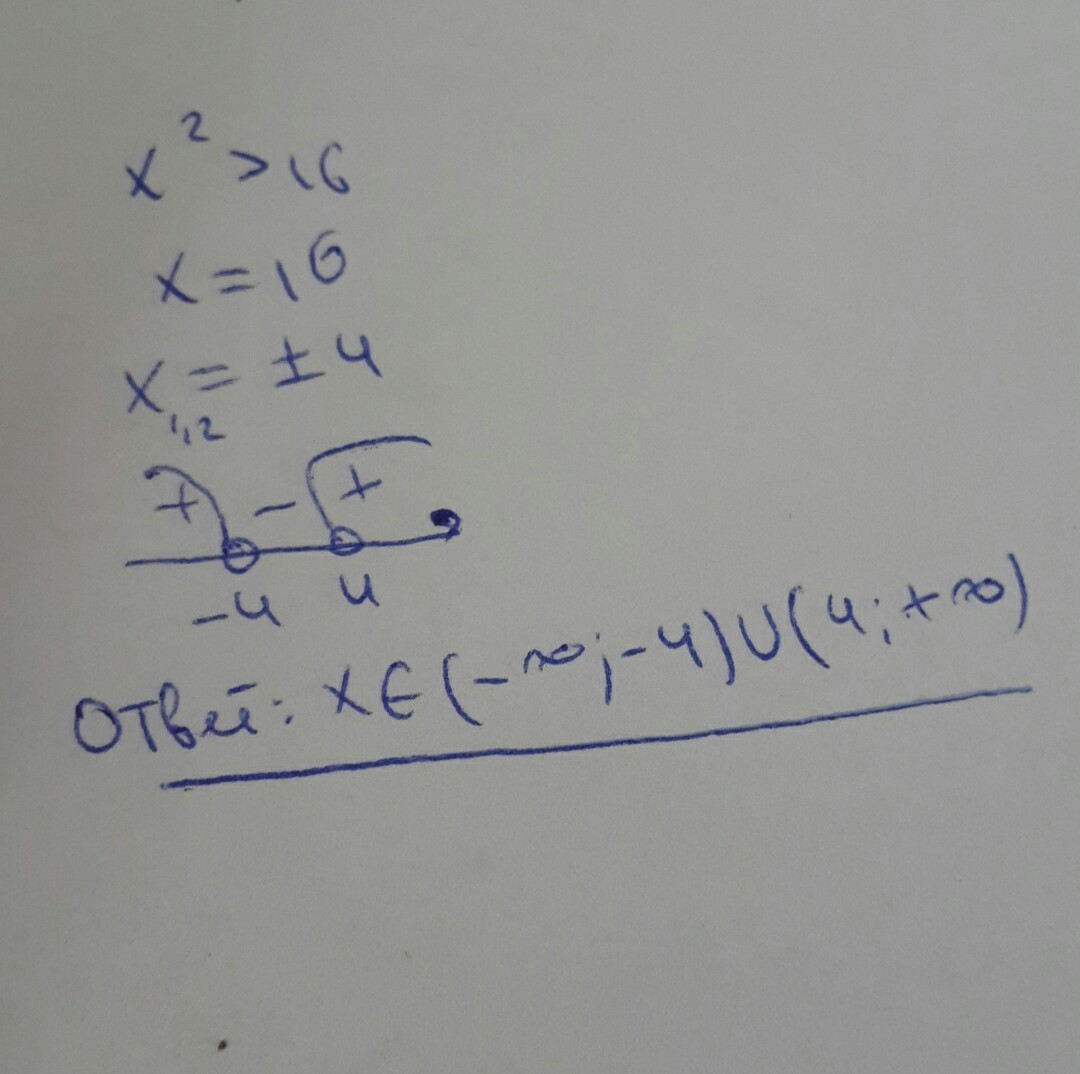 x² > 16
x = 16
x₁,₂ = ± 4
+ − +
-4 4
Ответ: x ∈ (-∞; -4) ∪ (4; +∞)